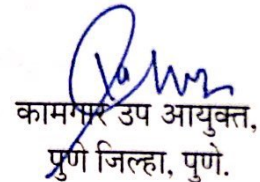 कामगार उप आयुक्त,
पुणे जिल्हा, पुणे.